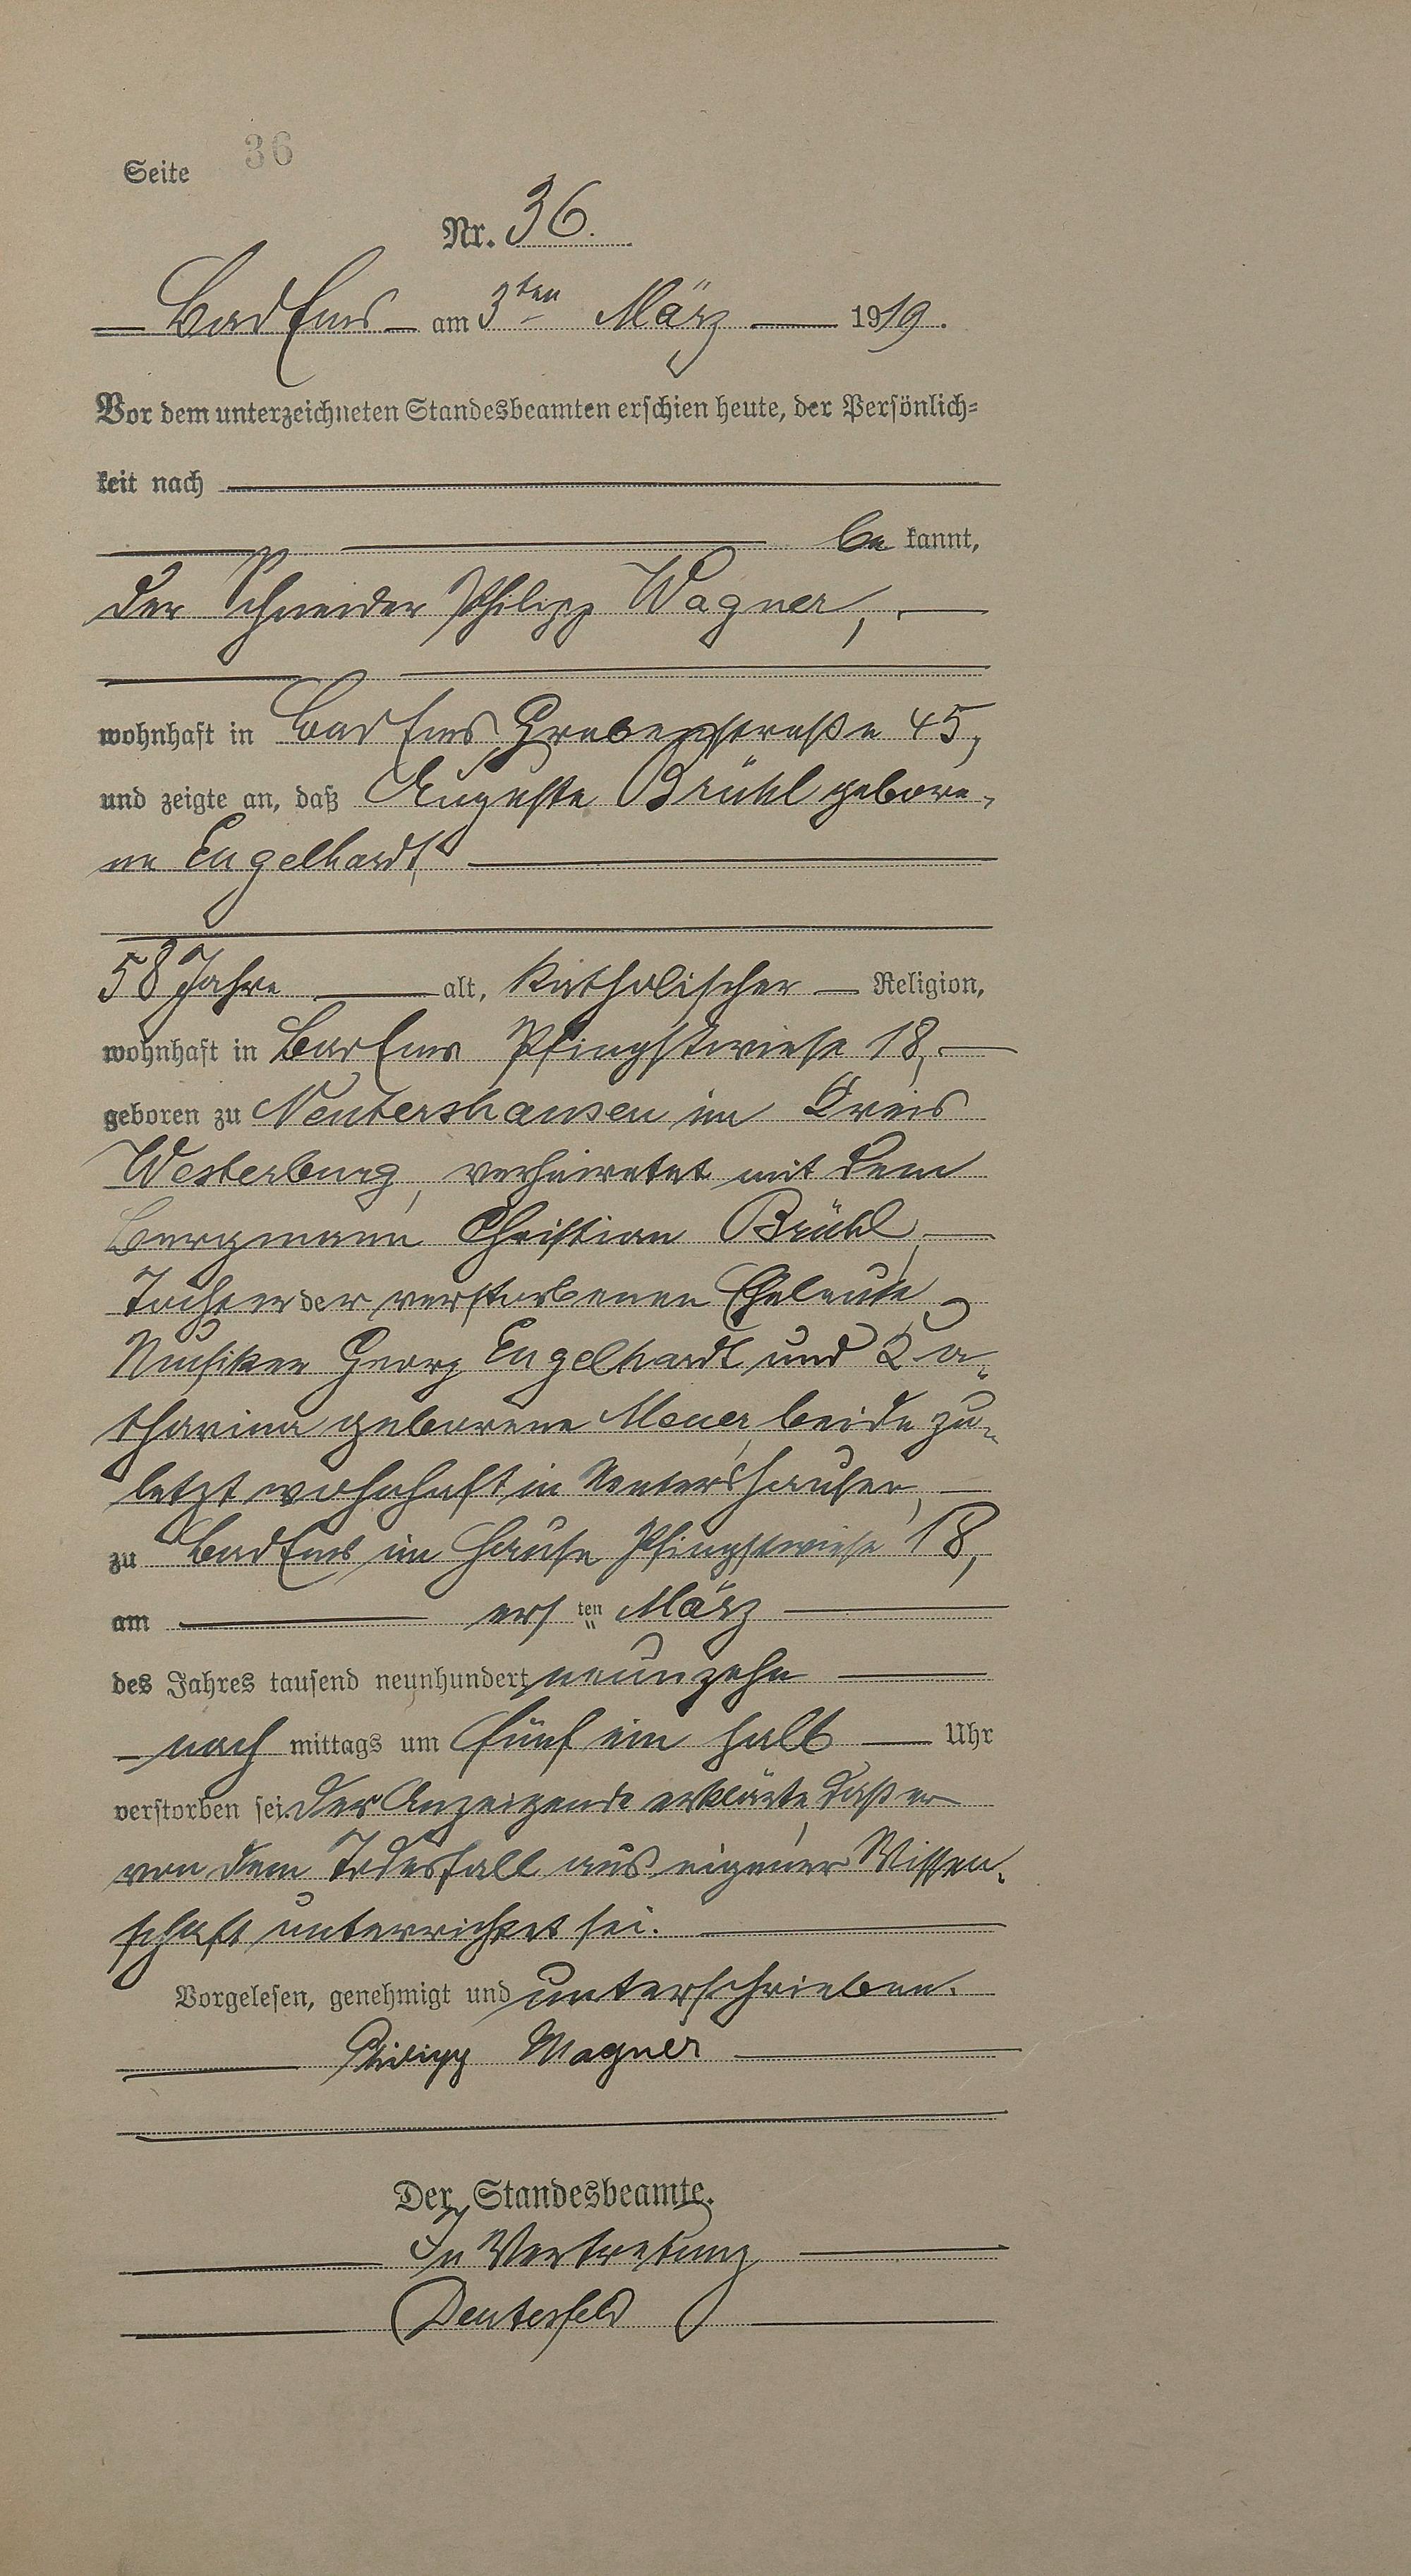 Seite 36
Nr. 36.
Bad Ems am 3ten März 1919.
Vor dem unterzeichneten Standesbeamten erschien heute, der Persönlich=
keit nach
be kannt,
der Schneider Philipp Wagner,
wohnhaft in Bad Ems Grabenstraße 45,
und zeigte an, daß Auguste Brühl gebore-
ne Engelhardt,
58 Jahre alt, katholischer Religion,
wohnhaft in Bad Ems Pfingstwiese 18,
geboren zu Nentershausen im Kreis
Westerburg, verheiratet mit dem
Bergmann Christian Brühl,
Tochter der verstorbenen Eheleute
Musiker Georg Engelhardt und Ka-
tharina geborene Meuer, beide zu-
letzt wohnhaft in Nentershausen,
zu Bad Ems im Hause Pfingstwiese 18,
am ersten März
des Jahres tausend neunhundert neunzehn
nach mittags um fünf ein halb Uhr
verstorben sei. Der Anzeigende erklärte, daß er
von dem Todesfall aus eigener Wissen-
schaft unterrichtet sei.
Vorgelesen, genehmigt und unterschrieben.
Philipp Wagner
Der Standesbeamte.
In Vertretung